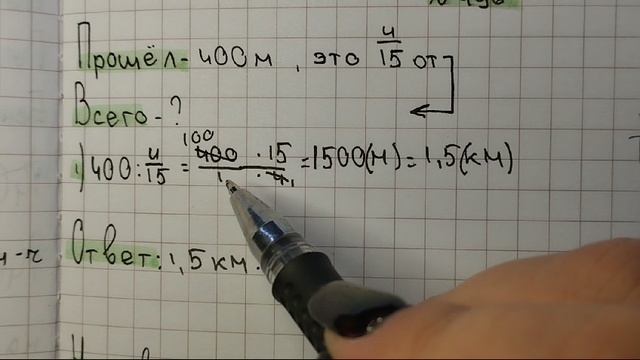 Прошёл - 400 м, это 4/15 от
Всего - ?
1) 400 : 4/15 = 100 400 · 15 / 1 · 4 1 = 1500 (м) = 1,5 (км)
Ответ: 1,5 км.